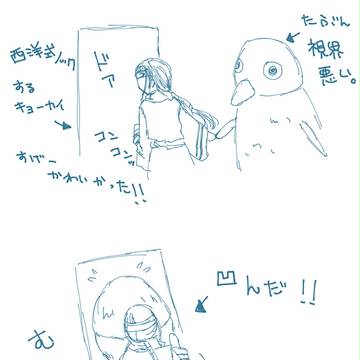 西洋式ノック
する
キョーカイ
ドア
コン
コンッ
すげー
かわいかった!!
たぶん
視界
悪い。
凹んだ!!
む